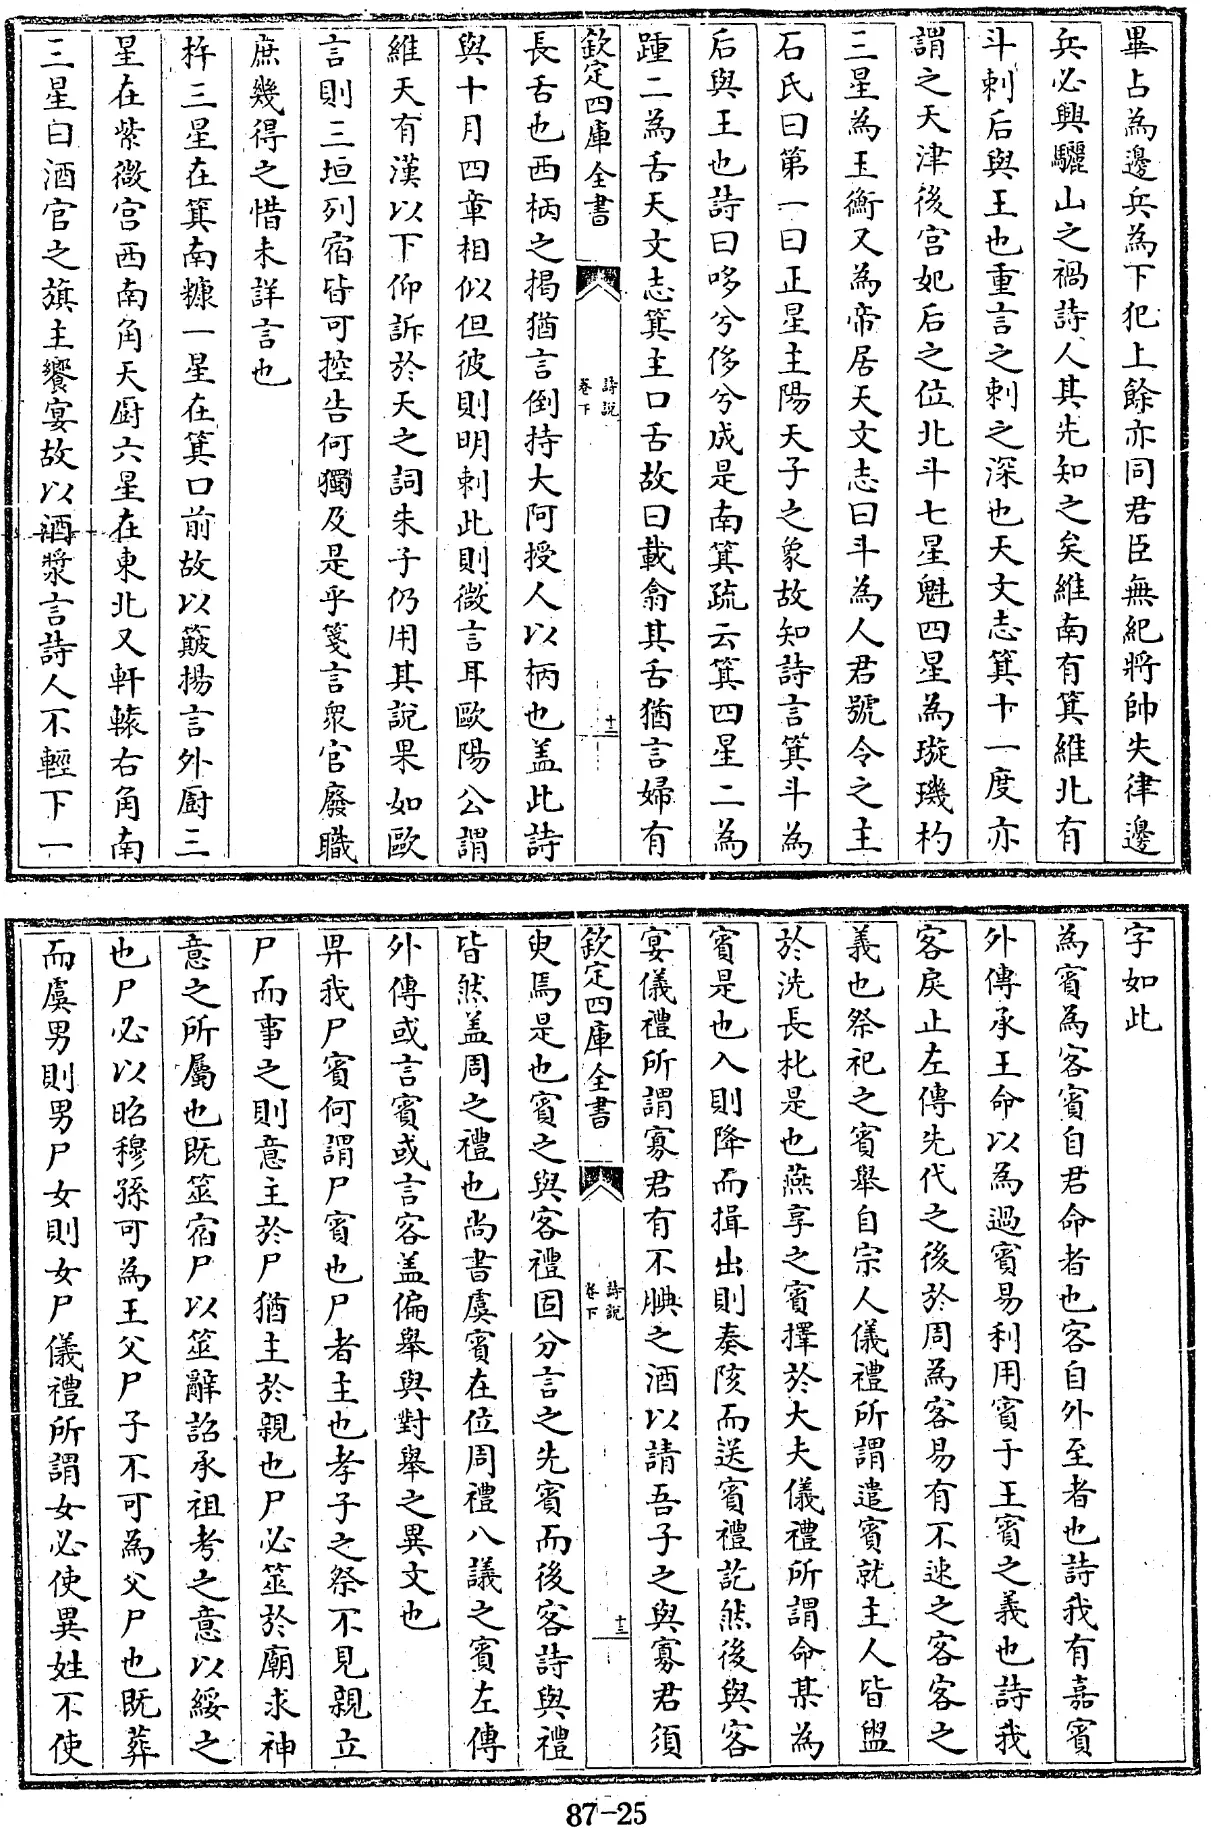 畢占為邊兵為下犯上餘亦同君臣無紀將帥失律邊
兵必興驪山之禍詩人其先知之矣維南有箕維北有
斗刺后與王也重言之刺之深也天文志箕十一度亦
謂之天津後宫妃后之位北斗七星魁四星為璇璣杓
三星為玉衡又為帝居天文志曰斗為人君號令之主
石氏曰第一曰正星主陽天子之象故知詩言箕斗為
后與王也詩曰哆兮侈兮成是南箕疏云箕四星二為
踵二為舌天文志箕主口舌故曰載翕其舌猶言婦有
欽定四庫全書
詩説
卷下
十二
長舌也西柄之揭猶言倒持大阿授人以柄也盖此詩
與十月四章相似但彼則明刺此則微言耳歐陽公謂
維天有漢以下仰訴於天之詞朱子仍用其說果如歐
言則三垣列宿皆可控告何獨及是乎箋言衆官廢職
庶幾得之惜未詳言也
杵三星在箕南糠一星在箕口前故以簸揚言外廚三
星在紫微宫西南角天廚六星在東北又軒轅右角南
三星曰酒官之旗主饗宴故以酒漿言詩人不輕下一
字如此
為賓為客賓自君命者也客自外至者也詩我有嘉賓
外傳承王命以為過賓易利用賓于王賓之義也詩我
客戾止左傳先代之後於周為客易有不速之客客之
義也祭祀之賓舉自宗人儀禮所謂遣賓就主人皆盥
於洗長朼是也燕享之賓擇於大夫儀禮所謂命某為
賓是也入則降而揖出則奏陔而送賓禮訖然後與客
宴儀禮所謂寡君有不腆之酒以請吾子之與寡君須
欽定四庫全書
詩説
卷下
十三
臾焉是也賓之與客禮固分言之先賓而後客詩與禮
皆然盖周之禮也尚書虞賓在位周禮八議之賓左傳
外傳或言賓或言客盖偏舉與對舉之異文也
畀我尸賓何謂尸賓也尸者主也孝子之祭不見親立
尸而事之則意主於尸猶主於親也尸必筮於廟求神
意之所屬也既筮宿尸以筮辭詔承祖考之意以綏之
也尸必以昭穆孫可為王父尸子不可為父尸也既葬
而虞男則男尸女則女尸儀禮所謂女必使異姓不使
87-25